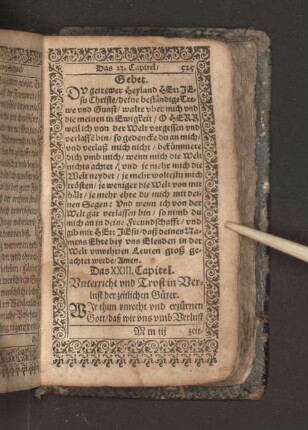 Das 23. Capitel/ 525
Gebet.
DU getrewer Heyland HErr JE-
su Christe/ deine beständige Tre-
we vnd Gunst/ walte vber mich vnd
die meinen in Ewigkeit/ O HERR
weil ich von der Welt vergessen vnd
verlassē bin/ so gedencke du an mich/
vnd verlaß mich nicht/ bekümmere
dich vmb mich/ wenn mich die Welt
nichts achtet/ vnd je mehr mich die
Welt neydet/ je mehr wollestu mich
trösten/ je weniger die Welt von mir
hält/ je mehr ehre du mich mit dei-
nen Segen: Vnd wenn ich von der
Welt gar verlassen bin/ so nimb du
mich an in deine Freundschafft/ vnd
gib mir HErr JEsu/ daß deines Na-
mens Ehre bey vns Elenden in der
Welt vnwehrten Leuten groß ge-
achtet werde/ Amen.
Das XXIII. Capitel.
Vnterricht vnd Trost in Ver-
lust der zeitlichen Güter.
WJr thun vnrecht vnd erzürnen
Gott/ daß wir vns vmb Verlust
M m iij zeit-